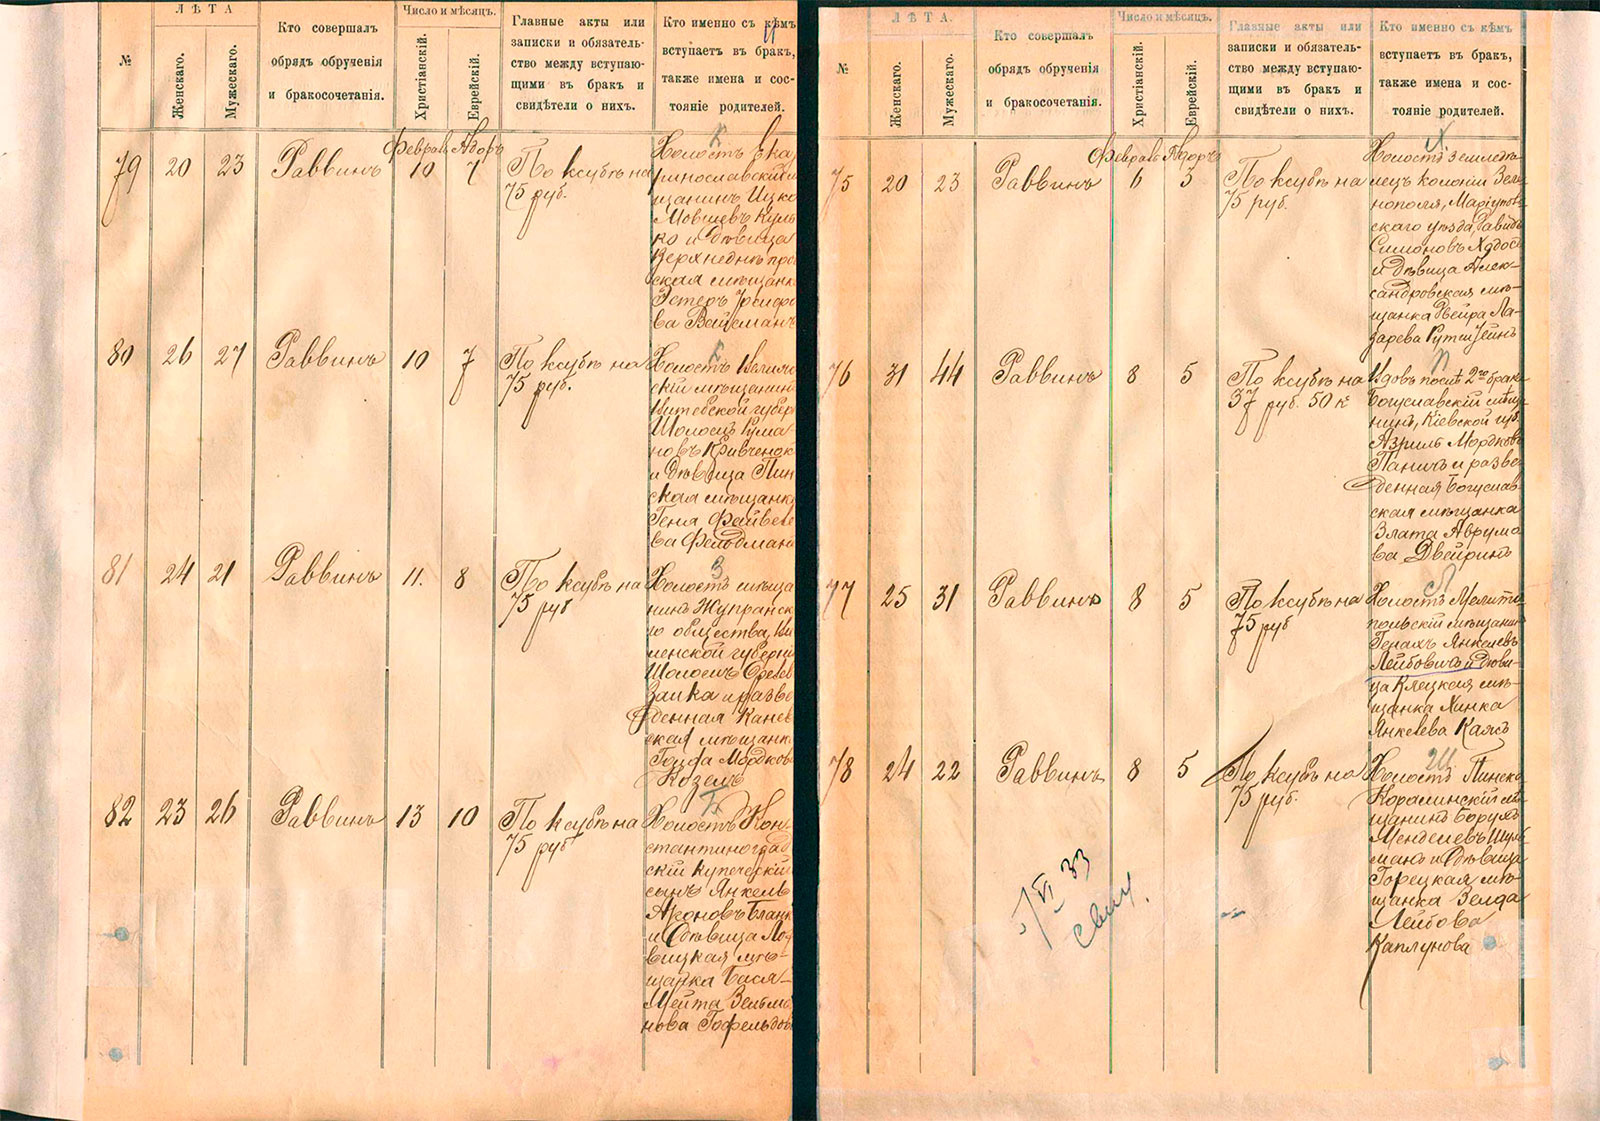 №
ЛѢТА
Женскаго.
Мужескаго.
Кто совершалъ
обрядъ обрученія
и бракосочетанія.
Число и мѣсяцъ.
Христіанскій.
Еврейскій.
Главные акты или
записки и обязатель-
ство между вступаю-
щими въ бракъ и
свидѣтели о нихъ.
Кто именно съ кѣмъ
вступаетъ въ бракъ,
также имена и сос-
тояніе родителей.
Февраль Адоръ
79 20 23 Раввинъ 10 7
По ксубѣ на
75 руб.
Холостъ Ека
ринославскій м
щанинъ Ицко
Мовшевъ Куль
ко и дѣвица
Верхнеднѣпро
ская мѣщанк
Эстеръ
ва Вейсманъ
80 26 27 Раввинъ 10 7
По ксубѣ на
75 руб.
Холостъ Велиж
скій мѣщанин
Витебской губер
Шоломъ
новъ Кривченок
и дѣвица Пин
ская мѣщанк
Геня Фейвеле
ва Фельдман
81 24 21 Раввинъ 11. 8
По ксубѣ на
75 руб
Холостъ мѣща
нинъ Жупранск
го общества, Ви
ленской губерні
Шоломъ
Заика и разве
денная Канев
ская мѣщанк
Голда Мордков
Козелъ
82 23 26 Раввинъ 13 10
По ксубѣ на
75 руб
Холостъ Кон-
стантиноград
скій купеческій
сынъ Янкель
Ароновъ Бланк
и дѣвица Ло
вицкая мѣ-
щанка Бася-
Мейта Зельма
нова Гофельдов
№
ЛѢТА.
Женскаго.
Мужескаго.
Кто совершалъ
обрядъ обрученія
и бракосочетанія.
Число и мѣсяцъ.
Христіанскій.
Еврейскій.
Главные акты или
записки и обязатель-
ство между вступаю-
щими въ бракъ и
свидѣтели о нихъ.
Кто именно съ кѣмъ
вступаетъ въ бракъ,
также имена и сос-
тояніе родителей.
Февраль Адоръ
75 20 23 Раввинъ 6 3
По ксубѣ на
75 руб.
Холостъ земледѣ
лецъ колоніи Зеле
нополя, Маріуполь
скаго уѣзда, Давидъ
Симоновъ Хадос
и дѣвица Алек-
сандровская мѣ-
щанка Двейра Ла-
зарева Рутштейнъ
76 31 44 Раввинъ 8 5
По ксубѣ на
37 руб. 50 к
Вдовъ послѣ 2го брака
Богуславскій мѣща
нинъ, Кіевской губ.
Азриль Мордков
Паничъ и разве
денная Богуслав
ская мѣщанка
Злата Аврумо
ва Двейринъ
77 25 31 Раввинъ 8 5
По ксубѣ на
75 руб
Холостъ Мелито-
польскій мѣщанин
Герахъ Янкелевъ
Лейбовичъ и дѣви-
ца Клецкая мѣ-
щанка Минка
Янкелева Каясъ
78 24 22 Раввинъ 8 5
По ксубѣ на
75 руб.
Холостъ Пинско
Королинскій мѣ
щанинъ Борухъ
Менделевъ Шуль
манъ и дѣвица
Горецкая мѣ-
щанка Зелда
Лейбова
Каплунова
5/VI 33